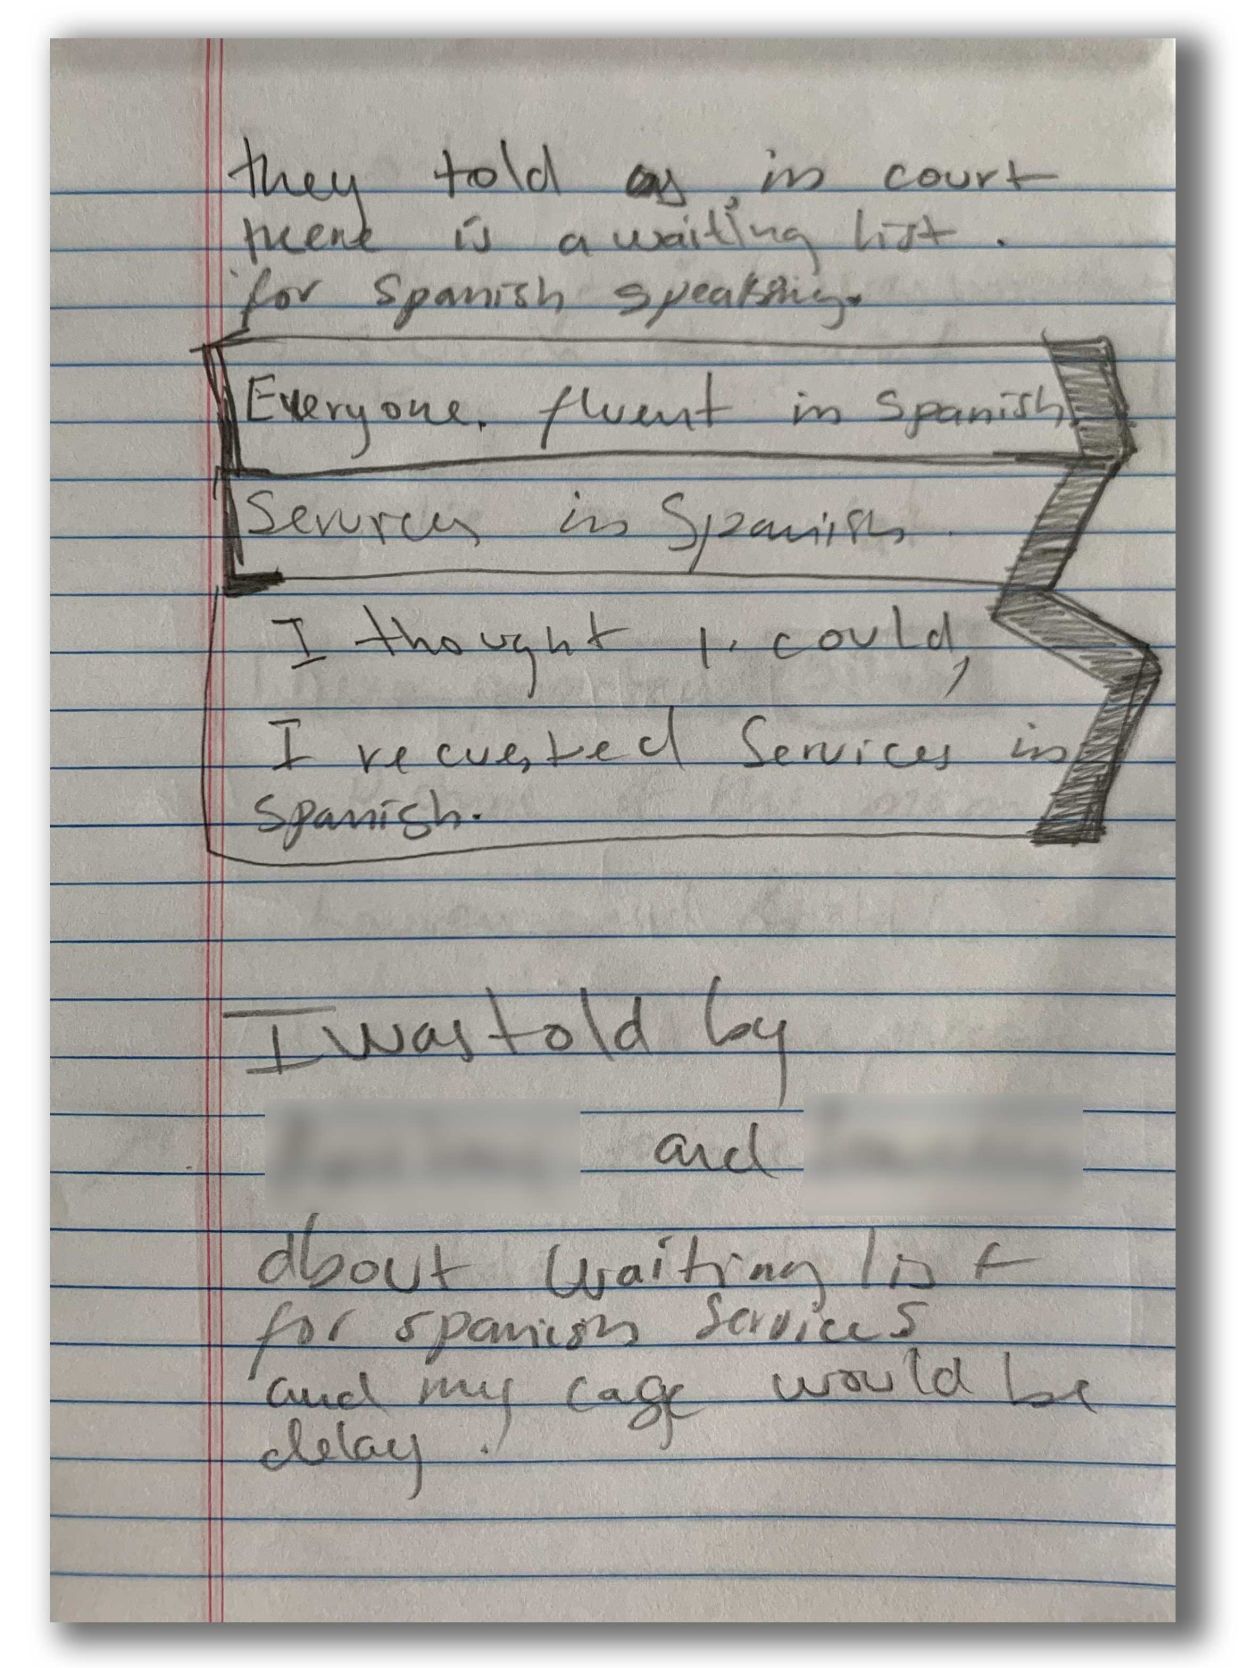 they told us in court
there is a waiting list.
for Spanish speaking.
Everyone. fluent in Spanish.
Services in Spanish.
I thought I. could,
I recuested Services in
spanish.
I was told by
and
about waiting list
for spanish services
and my case would be
delay.